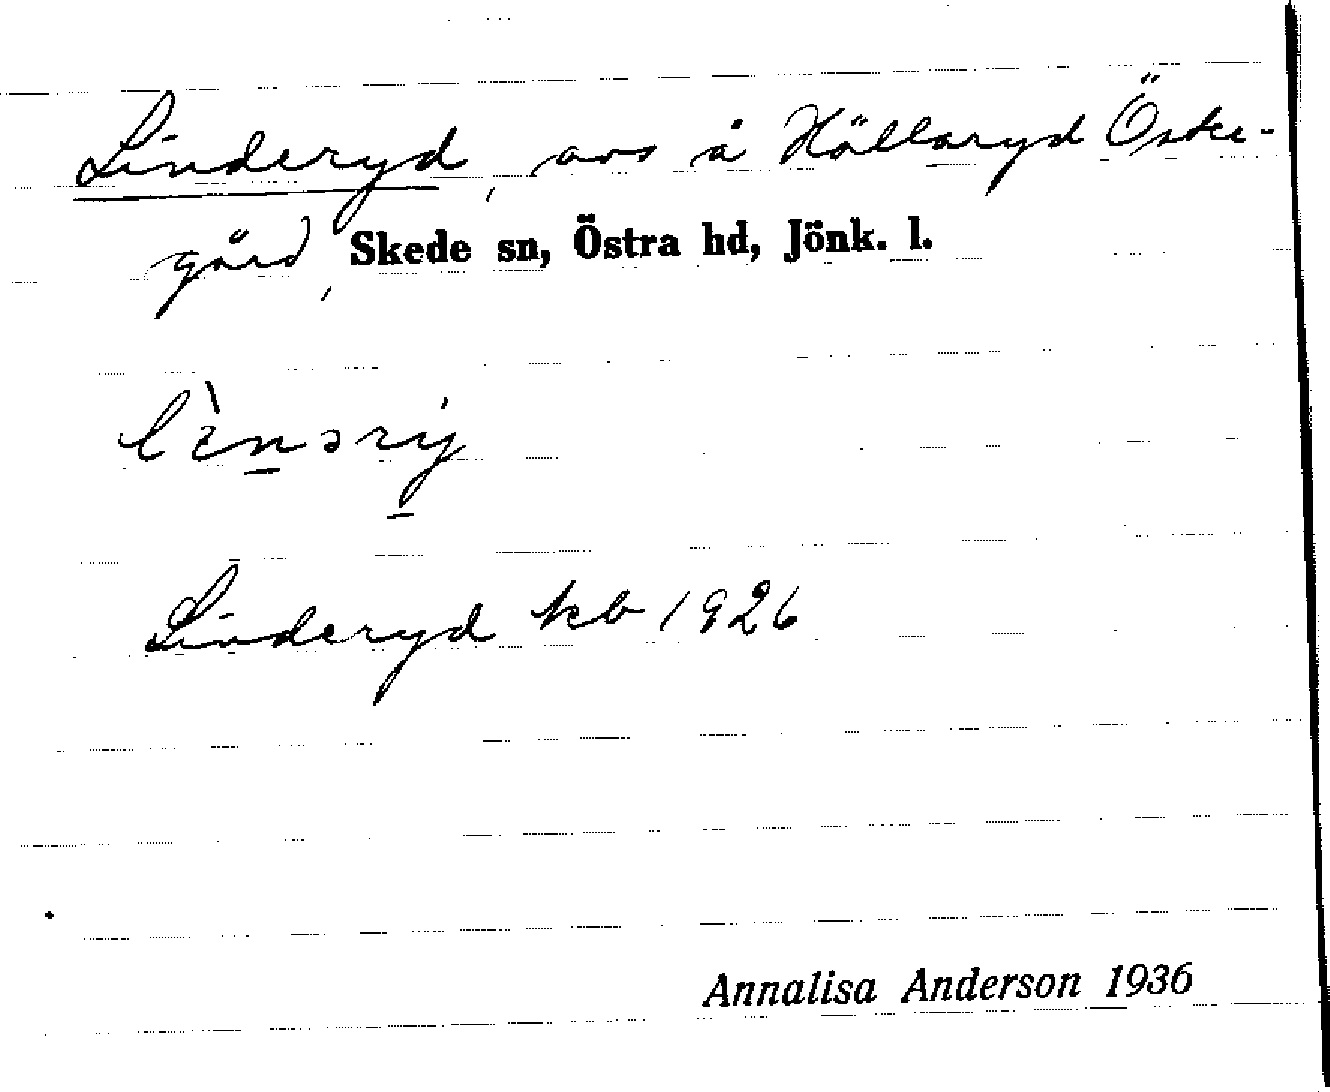 Linderyd, avs å Hällaryd Öste-
gård, Skede sn, Östra hd, Jönk. l.
Linderyd kb 1926
Annalisa Anderson 1936